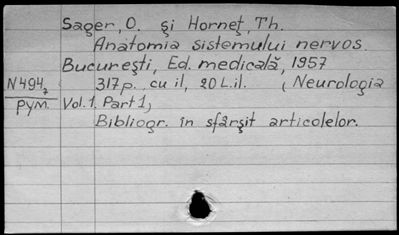 Sager, O. și Horneț, Th.
Anatomia sistemului nervos.
București, Ed. medicală, 1957
N494, 317p. cu il, 20 L.il. (Neurologia
рум. Vol. 1. Part 1)
Bibliogr. în sfârșit articolelor.